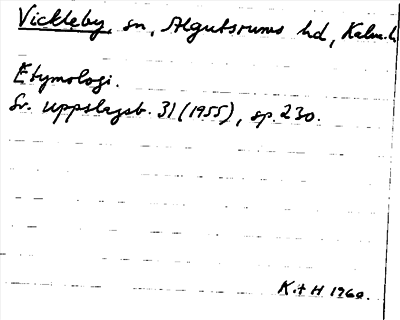 Vickleby, sn, Algutsrums hd, Kalm. l.
Etymologi.
Sv. uppslagsb. 31 (1955), sp. 230.
K. + H 1960.